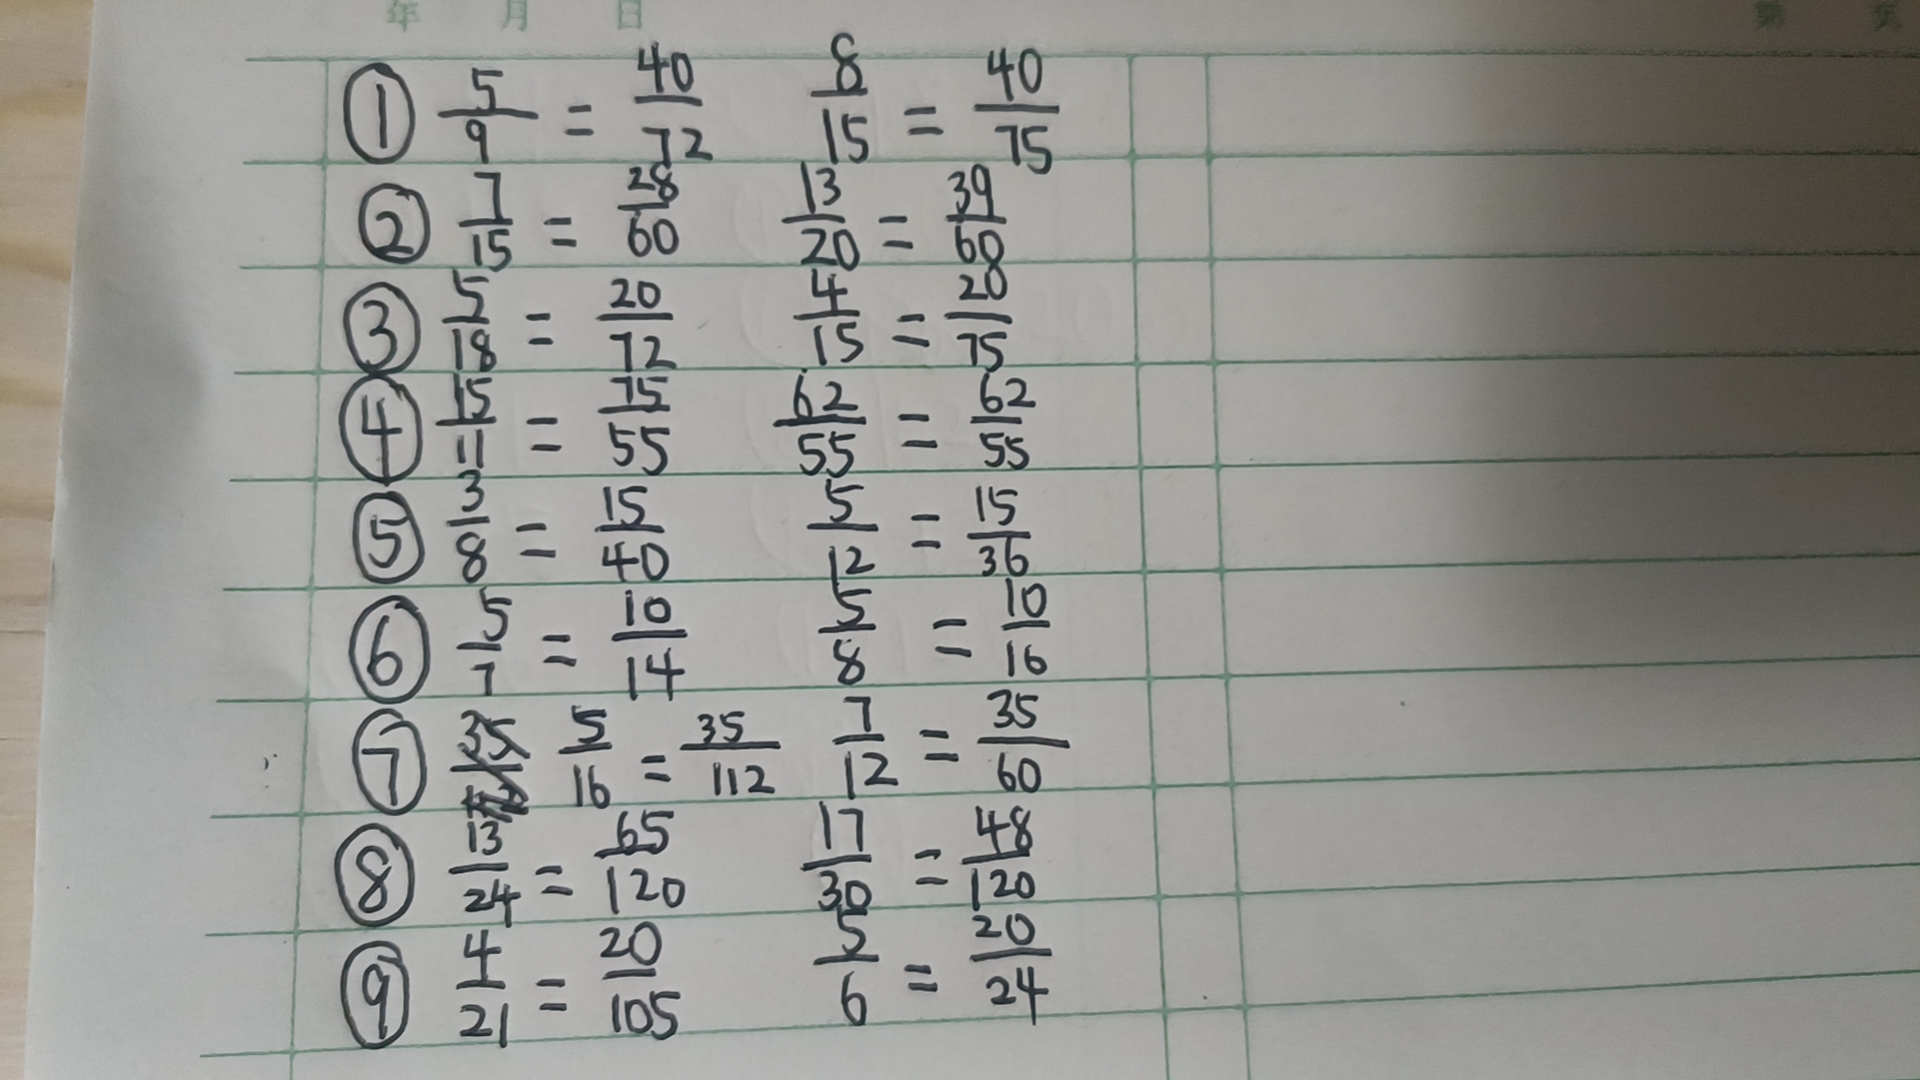 年 月 日 第 页
① 5/9 = 40/72 8/15 = 40/75
② 7/15 = 28/60 13/20 = 39/60
③ 5/18 = 20/72 4/15 = 20/75
④ 15/11 = 75/55 62/55 = 62/55
⑤ 3/8 = 15/40 5/12 = 15/36
⑥ 5/7 = 10/14 5/8 = 10/16
⑦ 5/16 = 35/112 7/12 = 35/60
⑧ 13/24 = 65/120 17/30 = 48/120
⑨ 4/21 = 20/105 5/6 = 20/24